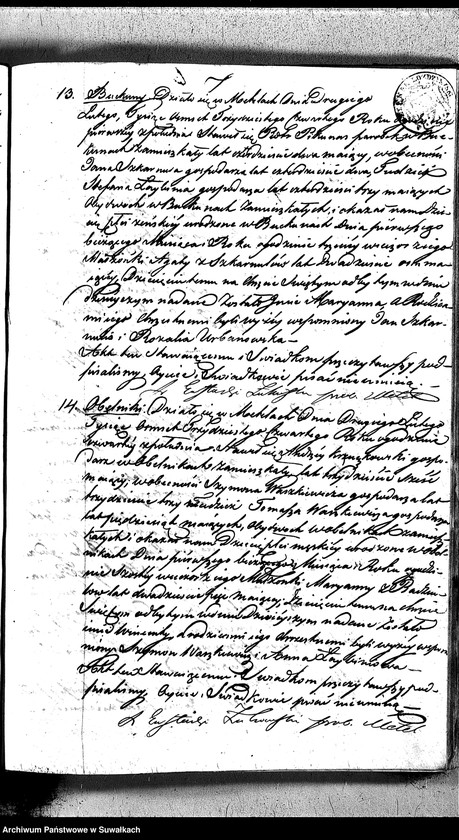 7
13. Buchany Działo się w Metelach Dnia Drugiego
Lutego, Tysiąc Osmset Trzydziestego Czwartego Roku o godzinie
pierwszej z południa Stawił się Piotr parobek w
zamieszkały lat dwa mający, w obecności
Jana Szkarnula gospodarza lat dwa, Tudzież
Stefana gospodarza lat trzy mających
Obydwóch w zamieszkałych, i okazał nam Dzie-
cię płci żeńskiej urodzone w Buchanach Dnia pierwszego
bieżącego Miesiąca i Roku o godzinie wieczor z iego
Małżonki Agaty z Szkarnulów lat Dwadzieścia ośm ma-
iącey, Dziecięciu temu na Chrzcie Świętym odbytym w dniu
dzisieyszym nadane zostało Imię Maryanna, a Rodzica-
mi iego Chrzestnemi byli wyżey wspomniony Jan Szkar-
nulis i Rozalia Urbanowska —
Akt ten Stawaiącemu i Swiadkom przeczytawszy pod-
pisaliśmy, Oyciec i Swiadkowie pisać nieumieią. —
prob. Metel
14. Obelniki. Działo się w Metelach Dnia Drugiego Lutego
Tysiąc Osmset Trzydziestego Czwartego Roku o godzinie
z południa, Stawił się Andrzey gospo-
darz w Obelnikach zamieszkały lat trzydzieści sześć
maiący, w obecności Szymona Waszkiewicza gospodarza lat
trzydzieści trzy tudzież Tomasza Waszkiewicza gospodarza
lat pięćdziesiąt maiących, Obydwóch w Obelnikach zamiesz-
kałych i okazał nam Dziecię płci męskiey urodzone w Obel-
nikach Dnia pierwszego bieżącego Miesiąca i Roku o godzi-
nie szóstey wieczor z iego Małżonki Maryanny z
lat dwadzieścia maiącey, Dziecięciu temu na Chrzcie
Świętym odbytym w dniu Dzisieyszym nadane zostało
Imię Wincenty, a rodzicami iego Chrzestnemi byli wyżey wspom-
niony Szymon Waszkiewicz i Anna —
Akt ten Stawaiącemu i Swiadkom przeczytawszy pod-
pisaliśmy Oyciec i Swiadkowie pisać nieumieią —
X. Eustachi prob. Metel
Archiwum Państwowe w Suwałkach